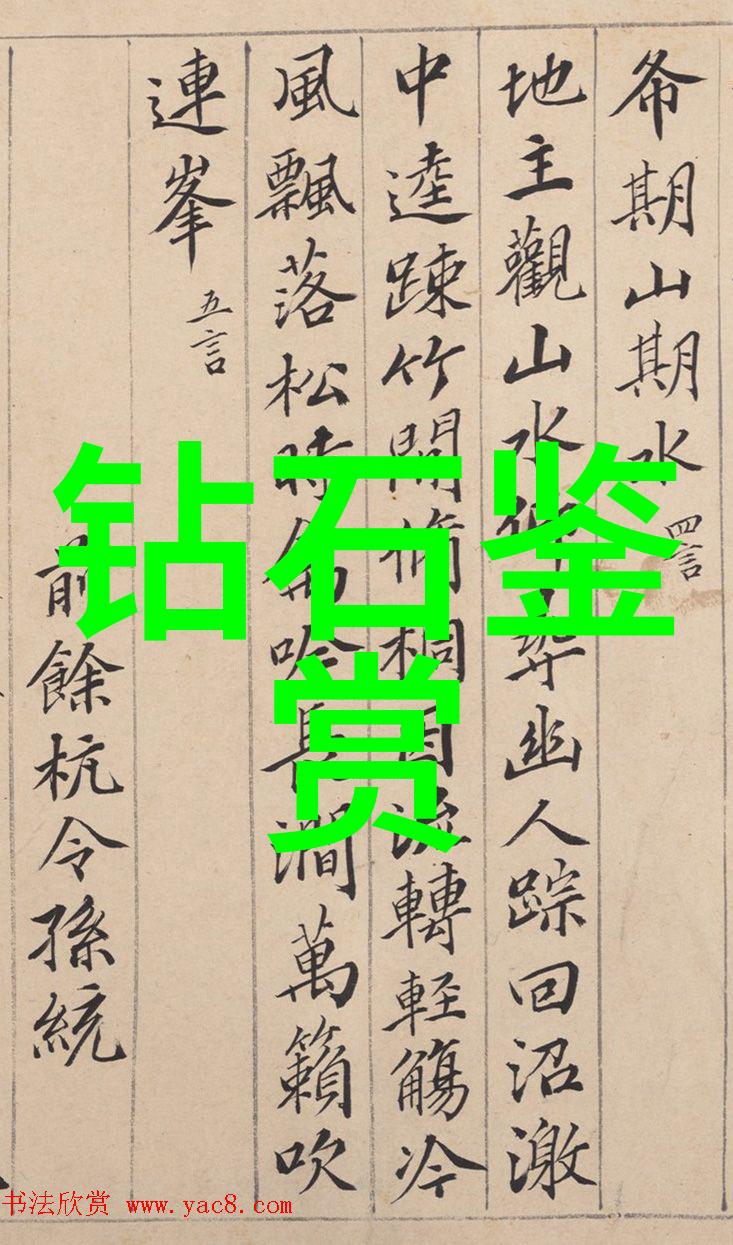 希期山期水 四言
地主觀山水仰尋幽人踪回沼激
中逵踈竹間脩桐因流轉輕觴冷
風飄落松時禽吟長澗萬籟吹
連峯 五言
前餘杭令孫統
钻石鉴
赏
书法欣赏 www.yac8.com